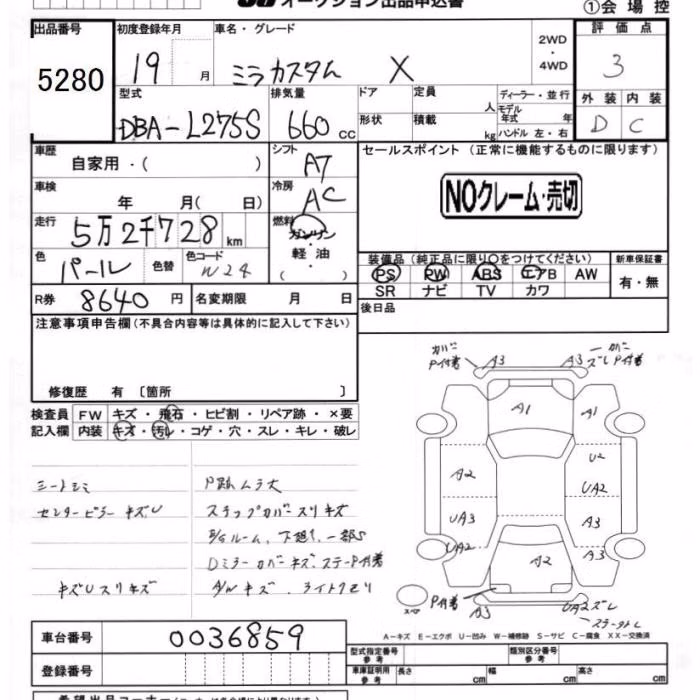 ①会場控
オークション出品申込書
出品番号
5280
初度登録年月
19 月
車名・グレード
ミラカスタム X
2WD
・
4WD
評価点
3
外装 内装
D C
型式
DBA-L275S
排気量
660 cc
ドア 定員 人
形状 積載 kg
ディーラー・並行
モデル年式 年
ハンドル 左・右
車歴
自家用・( )
シフト
A7
セールスポイント (正常に機能するものに限ります)
NOクレーム・売切
車検
年 月( 日)
冷房
AC
走行
5万2千728 km
燃料
ガソリン
軽油
( )
色
パール
色替
色コード
W24
装備品(純正品に限り○をつけてください)
PS PW ABS エアB AW
SR ナビ TV カワ
新車保証書
有・無
R券 8640 円
名変期限 月 日
後日品
注意事項申告欄(不具合内容等は具体的に記入して下さい)
修復歴 有 〔箇所 〕
検査員
記入欄
FW キズ・飛石・ヒビ割・リペア跡・×要
内装 キズ・汚レ・コゲ・穴・スレ・キレ・破レ
シートシミ
センターピラーキズU
キズUスリキズ
P跡ムラ大
ステップカバースリキズ
E/Gルーム、下廻り、一部S
Dミラーカバーキズ、ステーP付着
A/Wキズ、ライトクモリ
カバー
P付着
A3
A3
カバー
ズレP付着
A1
A1
A2
U2
UA2
UA3
A3
UA2
A2
A3
スペア
P付着
A3
UA2ズレ
A-キズ E-エクボ U-凹み W-補修跡 S-サビ C-腐食 XX-交換済
車台番号
0036859
登録番号
型式指定番号
参考
類別区分番号
参考
車庫証明用
参考
長さ cm
幅 cm
高さ cm